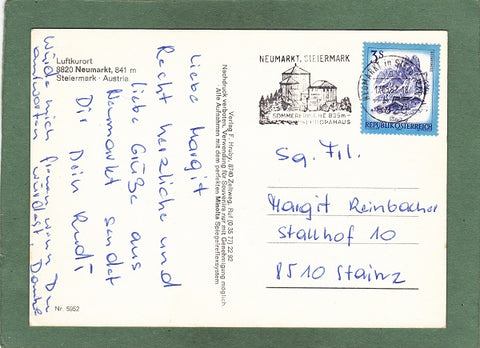 Luftkurort
8820 Neumarkt, 841 m
Steiermark · Austria
Liebe Margit
Recht herzliche und
liebe Grüße aus
Neumarkt sendet
Dir Dein Rudi
Würde mich freuen wenn Du
antworten würdest, Danke
Nr. 5952
Verlag F. Hruby, 8740 Zeltweg, Ruf (0 35 77) 22 92
Nachdruck verboten. Verwendung für Souvenirs nur mit Genehmigung möglich
Alle Aufnahmen mit dem perfekten Minolta Spiegelreflexsystem
NEUMARKT, STEIERMARK
SOMMERFRISCHE 835m
EUROPAHAUS
3S
REPUBLIK ÖSTERREICH
Sg. Frl.
Margit Reinbacher
Stallhof 10
8510 Stainz